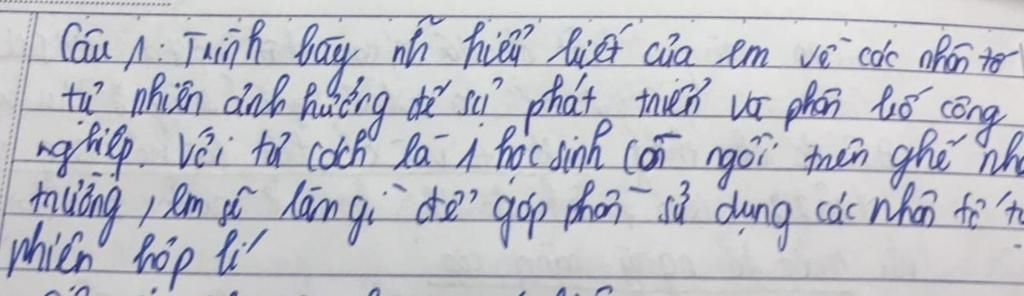 Câu 1: Trình bày nh hiểu biết của em về các nhân tố
tự nhiên ảnh hưởng đế sự phát triển và phân bố công
nghiệp. Với tư cách là 1 học sinh còn ngồi trên ghế nhà
trường, em sẽ làm gì để góp phần sử dụng các nhân tố tự
nhiên hợp lí